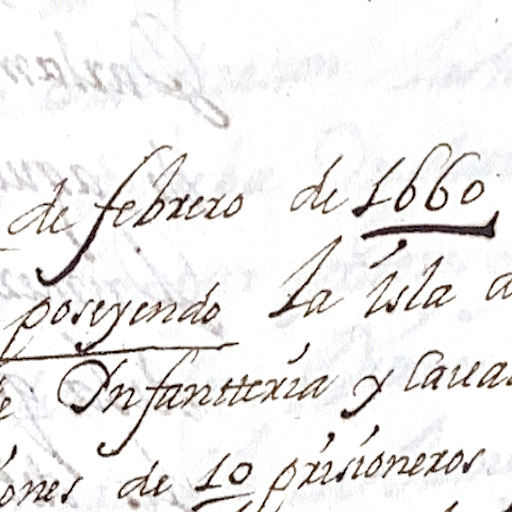 de febrero de 1660
poseyendo La isla
Infantteria y Cava
iones de 10 prisioneros